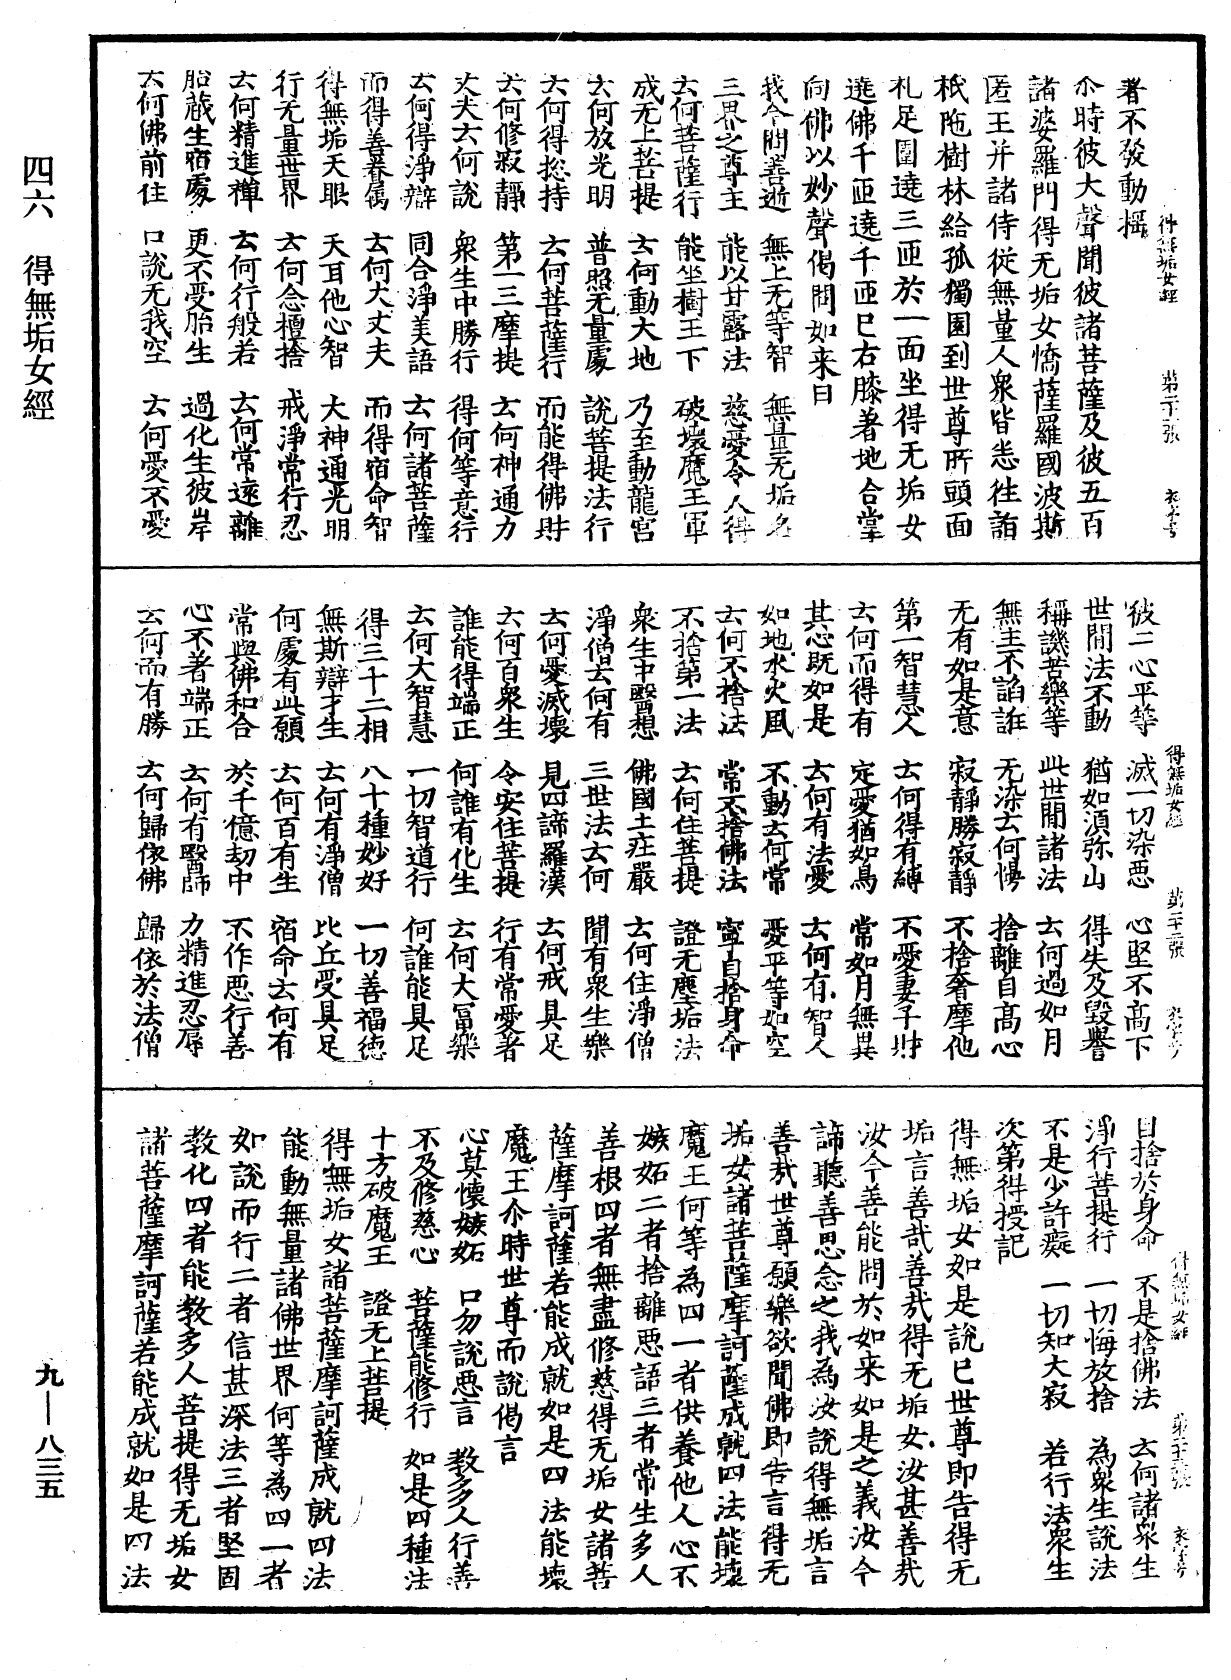 四六　得無垢女經
九—八三五
得無垢女經　第二十一張
者不發動搖
尒時彼大聲聞彼諸菩薩及彼五百
諸婆羅門得无垢女憍薩羅國波斯
匿王并諸侍從無量人衆皆悉往詣
祇陁樹林給孤獨園到世尊所頭面
礼足圍遶三匝於一面坐得无垢女
遶佛千匝遶千匝已右膝著地合掌
向佛以妙聲偈問如来曰
我今問善逝　無上无等智　無量无垢名
三界之尊主　能以甘露法　慈愛令人得
云何菩薩行　能坐樹王下　破壞魔王軍
成无上菩提　云何動大地　乃至動龍宮
云何放光明　普照无量處　說菩提法行
云何得捴持　云何菩薩行　而能得佛財
云何修寂靜　第一三摩提　云何神通力
丈夫云何說　衆生中勝行　得何等意行
云何得淨辯　同合淨美語　云何諸菩薩
而得善眷属　云何大丈夫　而得宿命智
得無垢天眼　天耳他心智　大神通光明
行无量世界　云何念檀捨　戒淨常行忍
云何精進禅　云何行般若　云何常遠離
胎藏生宿處　更不受胎生　過化生彼岸
云何佛前住　口說无我空　云何愛不愛
得無垢女經　第二十二張
彼二心平等　滅一切染惡　心堅不高下
世間法不動　猶如湏弥山　得失及毀譽
稱譏苦樂等　此世間諸法　云何過如月
無主不諂誑　无染云何慢　捨離自高心
无有如是意　寂靜勝寂靜　不捨奢摩他
第一智慧人　云何得有縛　不愛妻子財
云何而得有　定愛猶如鳥　常如月無異
其心既如是　云何有法愛　云何有智人
如地水火風　不動云何常　愛平等如空
云何不捨法　常不捨佛法　寧自捨身命
不捨第一法　云何住菩提　證无塵垢法
衆生中醫想　佛國土莊嚴　云何住淨僧
淨僧云何有　三世法云何　聞有衆生樂
云何愛滅壞　見四諦羅漢　云何戒具足
云何百衆生　令安住菩提　行有常愛著
誰能得端正　何誰有化生　云何大冨樂
云何大智慧　一切智道行　何誰能具足
得三十二相　八十種妙好　一切善福徳
無斯辯才生　云何有淨僧　比丘受具足
何處有此願　云何百有生　宿命云何有
常與佛和合　於千億劫中　不作惡行善
心不著端正　云何有醫師　力精進忍辱
云何而有勝　云何歸依佛　歸依於法僧
得無垢女經　第二十三張
自捨於身命　不是捨佛法　云何諸衆生
淨行菩提行　一切悔放捨　為衆生說法
不是少許癡　一切知大寂　若行法衆生
次第得授記
得無垢女如是說已世尊即告得无
垢言善哉善哉得无垢女汝甚善哉
汝今善能問於如来如是之義汝今
諦聽善思念之我為汝說得無垢言
善哉世尊願樂欲聞佛即告言得无
垢女諸菩薩摩訶薩成就四法能壞
魔王何等為四一者供養他人心不
嫉妬二者捨離惡語三者常生多人
善根四者無盡修慈得无垢女諸菩
薩摩訶薩若能成就如是四法能壞
魔王尒時世尊而說偈言
心莫懷嫉妬　口勿說惡言　教多人行善
不及修慈心　菩薩能修行　如是四種法
十方破魔王　證无上菩提
得無垢女諸菩薩摩訶薩成就四法
能動無量諸佛世界何等為四一者
如說而行二者信甚深法三者堅固
教化四者能教多人菩提得无垢女
諸菩薩摩訶薩若能成就如是四法